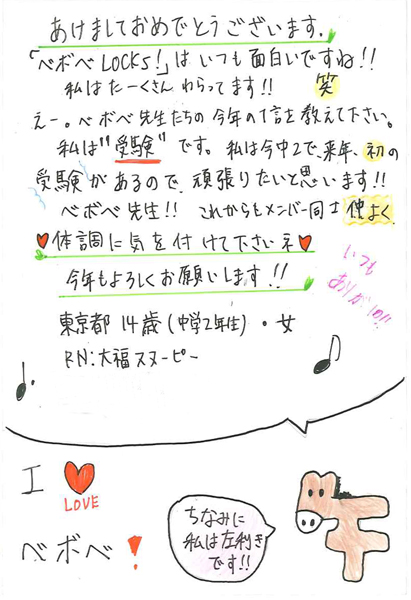 あけましておめでとうございます.
「ベボベLOCKS!」はいつも面白いですね!!
私はたーくさんわらってます!! 笑
えー。ベボベ先生たちの今年の1言を教えて下さい。
私は"受験"です。私は今中2で、来年、初の
受験があるので、頑張りたいと思います!!
ベボベ先生!! これからもメンバー同士仲よく
♥体調に気を付けて下さいネ♥
今年もよろしくお願いします!!
いつも
ありがとう!!
東京都 14歳(中学2年生)・女
RN:大福スヌーピー
I ♥
LOVE
ベボベ!
ちなみに
私は左利き
です!!